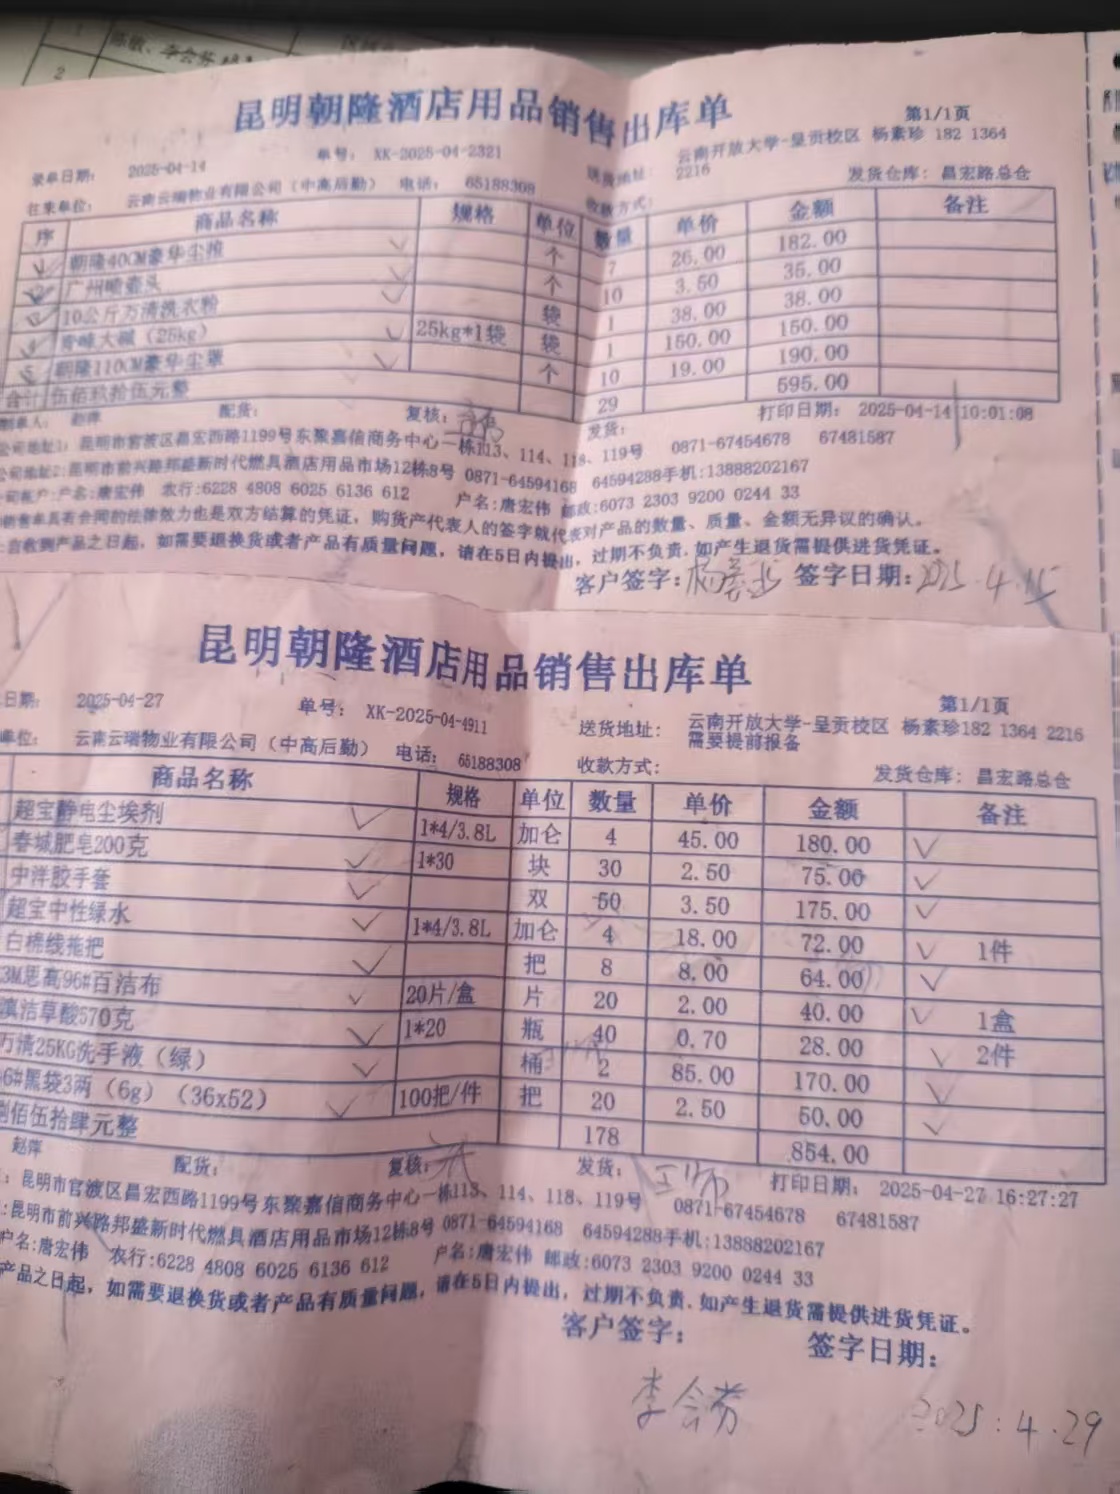 1
陈敏、李会芬
2
昆明朝隆酒店用品销售出库单
第1/1页
录单日期: 2025-04-14 单号: XK-2025-04-2321 送货地址: 云南开放大学-呈贡校区 杨素珍 182 1364 2216
往来单位: 云南云瑞物业有限公司(中高后勤) 电话: 65188308 收款方式: 发货仓库: 昌宏路总仓
序 商品名称 规格 单位 数量 单价 金额 备注
1 朝隆40CM豪华尘推 个 7 26.00 182.00
2 广州喷壶头 个 10 3.50 35.00
3 10公斤万清洗衣粉 袋 1 38.00 38.00
4 大碱(25kg) 25kg*1袋 袋 1 150.00 150.00
5 朝隆110CM豪华尘罩 个 10 19.00 190.00
合计 伍佰玖拾伍元整 29 595.00
制单人: 赵萍 配货: 复核: 发货: 打印日期: 2025-04-14 10:01:08
公司地址1: 昆明市官渡区昌宏西路1199号东聚嘉信商务中心一栋113、114、118、119号 0871-67454678 67481587
公司地址2:昆明市前兴路邦盛新时代燃具酒店用品市场12栋8号 0871-64594168 64594288手机:13888202167
公司账户:户名:唐宏伟 农行:6228 4808 6025 6136 612 户名:唐宏伟 邮政:6073 2303 9200 0244 33
销售单具有合同的法律效力也是双方结算的凭证, 购货产代表人的签字就代表对产品的数量、质量、金额无异议的确认。
自收到产品之日起, 如需要退换货或者产品有质量问题, 请在5日内提出, 过期不负责. 如产生退货需提供进货凭证。
客户签字: 签字日期: 2025.4.15
昆明朝隆酒店用品销售出库单
第1/1页
日期: 2025-04-27 单号: XK-2025-04-4911 送货地址: 云南开放大学-呈贡校区 杨素珍182 1364 2216 需要提前报备
单位: 云南云瑞物业有限公司(中高后勤) 电话: 65188308 收款方式: 发货仓库: 昌宏路总仓
商品名称 规格 单位 数量 单价 金额 备注
超宝静电尘埃剂 1*4/3.8L 加仑 4 45.00 180.00
春城肥皂200克 1*30 块 30 2.50 75.00
中洋胶手套 双 50 3.50 175.00
超宝中性绿水 1*4/3.8L 加仑 4 18.00 72.00 1件
白棉线拖把 把 8 8.00 64.00
3M思高96#百洁布 20片/盒 片 20 2.00 40.00 1盒
滇洁草酸570克 1*20 瓶 40 0.70 28.00 2件
万清25KG洗手液(绿) 桶 2 85.00 170.00
6#黑袋3两(6g)(36x52) 100把/件 把 20 2.50 50.00
捌佰伍拾肆元整 178 854.00
赵萍 配货: 复核: 发货: 打印日期: 2025-04-27 16:27:27
: 昆明市官渡区昌宏西路1199号东聚嘉信商务中心一栋113、114、118、119号 0871-67454678 67481587
:昆明市前兴路邦盛新时代燃具酒店用品市场12栋8号 0871-64594168 64594288手机:13888202167
户名:唐宏伟 农行:6228 4808 6025 6136 612 户名:唐宏伟 邮政:6073 2303 9200 0244 33
产品之日起, 如需要退换货或者产品有质量问题, 请在5日内提出, 过期不负责. 如产生退货需提供进货凭证。
客户签字: 签字日期:
李会芬 2025.4.29